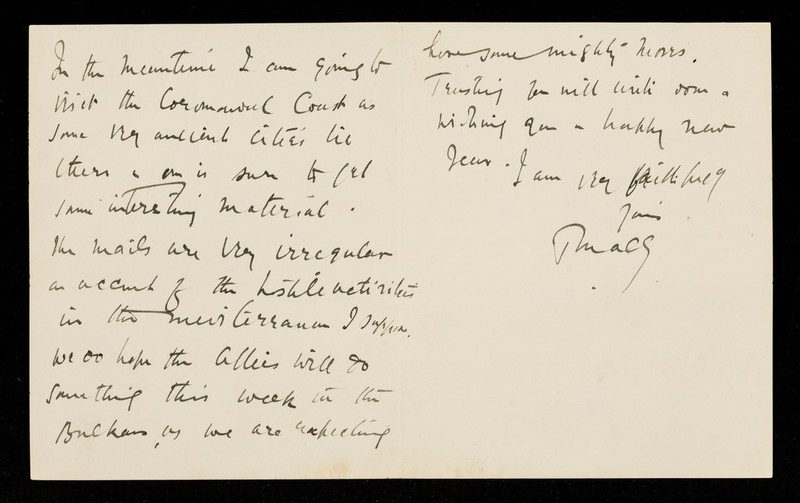 In the meantime I am going to
visit the Coromondul Coast as
some very ancient cities lie
there & one is sure to get
some interesting material.
The mails are very irregular
on account of the hostile activities
in the Mediterranean I suppose.
We do hope the Allies will do
something this week in the
Balkans, as we are expecting
here some mighty moves.
Trusting you will write soon &
wishing you a happy new
year. I am very faithfully
yours